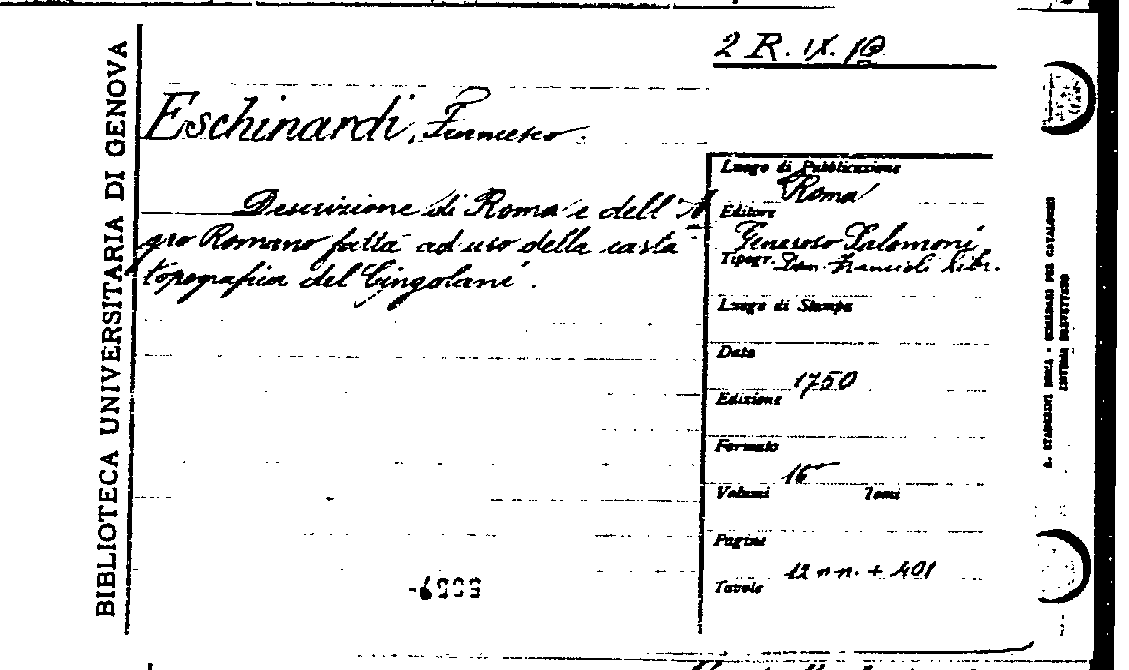 BIBLIOTECA UNIVERSITARIA DI GENOVA
2 R. IX. 10
Eschinardi, Francesco.
Descrizione di Roma e dell'A
gro Romano fatta ad uso della carta
topografica del Cingolani.
Luogo di Pubblicazione
Roma
Editore
Generoso Salomoni
Tipogr.
Libr.
Luogo di Stampa
Data
1750
Edizione
Formato
16
Volumi Tomi
Pagine
12 n n. + 401
Tavole